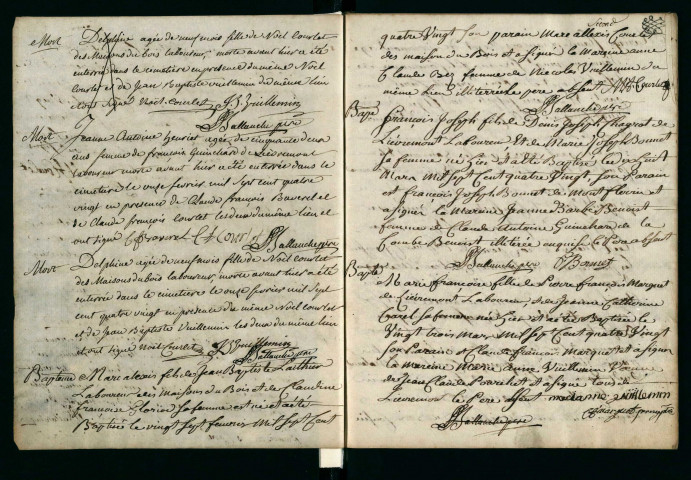 Mort Delphine agée de neuf mois fille de Noël Courlet
des Maisons du bois laboureur, morte avant hier a été
enterrée dans le cimetière en presence du même Noël
Courlet et de Jean Baptiste Vuillemin du même lieu
sont signé Noël Courlet J B Vuillemin
Ballanche p̄re
Mort Jeanne Antoine henriet agée de cinquante deux
ans femme de françois Guinchard de Lievremont
laboureur morte avant hier a été enterrée dans le
cimetière le onze fevrier mil sept cent quatre
vingt en presence de Claude françois Baveret et
de Claude françois Courlet les deux du même lieu et
ont signé C f Baveret C f Courlet Ballanche p̄re
Mort Delphine agée de neuf mois fille de Noël Courlet
des Maisons du bois laboureur, morte avant hier a été
enterrée dans le cimetière le onze fevrier mil sept
cent quatre vingt en presence du même Noël Courlet
et de Jean Baptiste Vuillemin les deux du même lieu
et ont signé Noël Courlet J B Vuillemin
Ballanche p̄re
Bapteme Marc alexis fils de Jean Baptiste
Laboureur des maisons du Bois et de Claudine
françoise sa femme est né et a été
Baptisé le vingt sept fevrier mil Sept Cent
Second
quatre Vingt son parain Marc allexis
des maison du Bois et a signé La Mareine anne
Claude femme de Nicolas Vuillemin du
même Lieu illiterée le pere absent
Ballanche p̄re
Bapt françois Joseph fils de Denis Joseph
Lievremont Laboureur Et de Marie Joseph Bonnet
Sa femme né hier et a été Baptisé Le dix huit
Mars Mil Sept Cent quatre Vingt, son Parain
est françois Joseph Bonnet de Montflovin et
a signé La Mareine Jeanne Barbe Benoit
femme de Claude Antoine Guinchard de la
Combe Benoit illiterée enquise Le Pere absent
Ballanche p̄re Bonnet
Bapt Marie françoise fille de Pierre françois Marguet
de Lievremont Laboureur, et de Jeanne Catherine
sa femme née hier et a été Baptisée le
Vingt trois Mars Mil Sept Cent quatre Vingt
son Parain est Claude françois Marguet et a signé
La Mareine Marie anne Vuillemin
de Jean Claude et a signé tous de
Lievremont Le Pere absent marie anne vuillemin
Ballanche p̄re